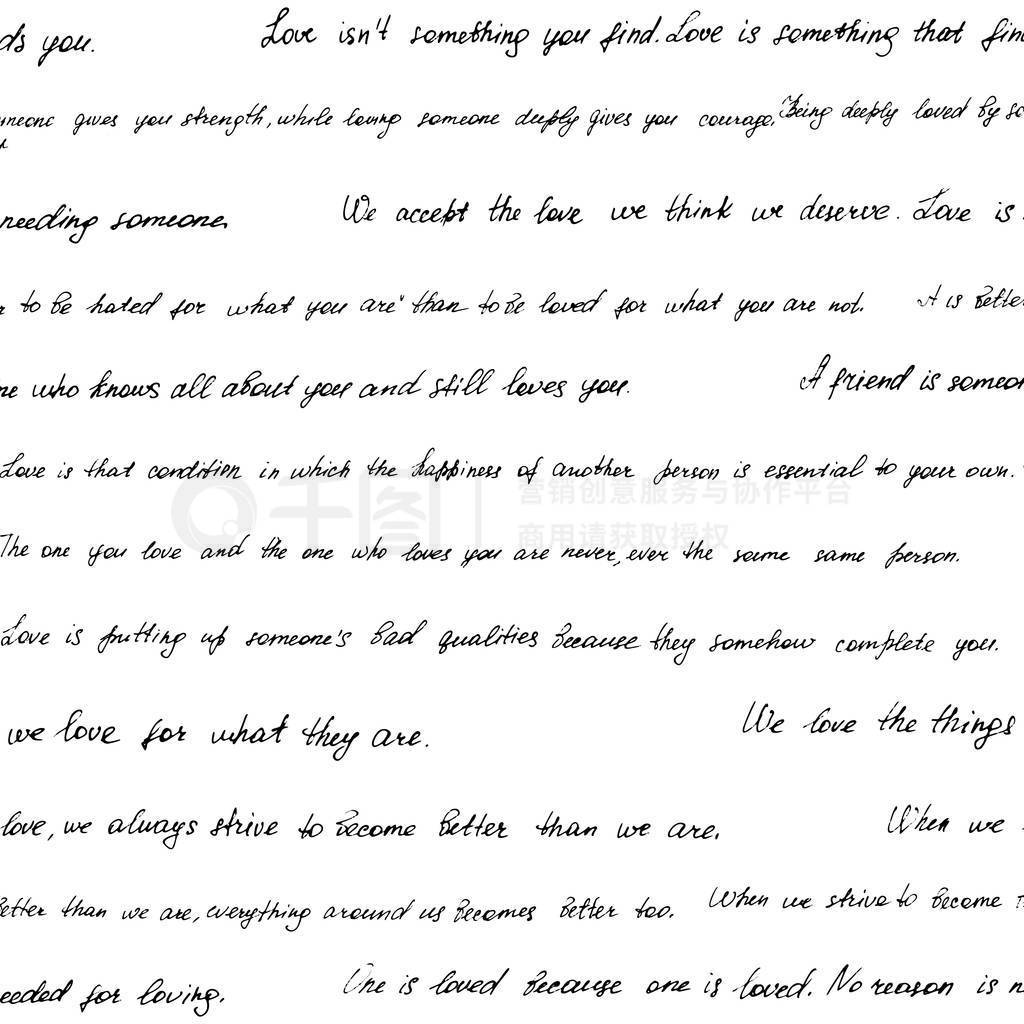 ds you. Love isn't something you find. Love is something that fin
meone gives you strength, while loving someone deeply gives you courage. Being deeply loved by so
needing someone. We accept the love we think we deserve. Love is
r to be hated for what you are than to be loved for what you are not. It is Bette
ne who knows all about you and still loves you. A friend is someon
Love is that condition in which the happiness of another person is essential to your own.
千图 营销创意服务与协作平台
商用请获取授权
The one you love and the one who loves you are never, ever the same same person.
Love is putting up someone's bad qualities Because they somehow complete you.
we love for what they are. We love the things
love, we always strive to become better than we are. When we
Better than we are, everything around us Becomes Better too. When we strive to Become
eeded for loving. One is loved Because one is loved. No reason is n